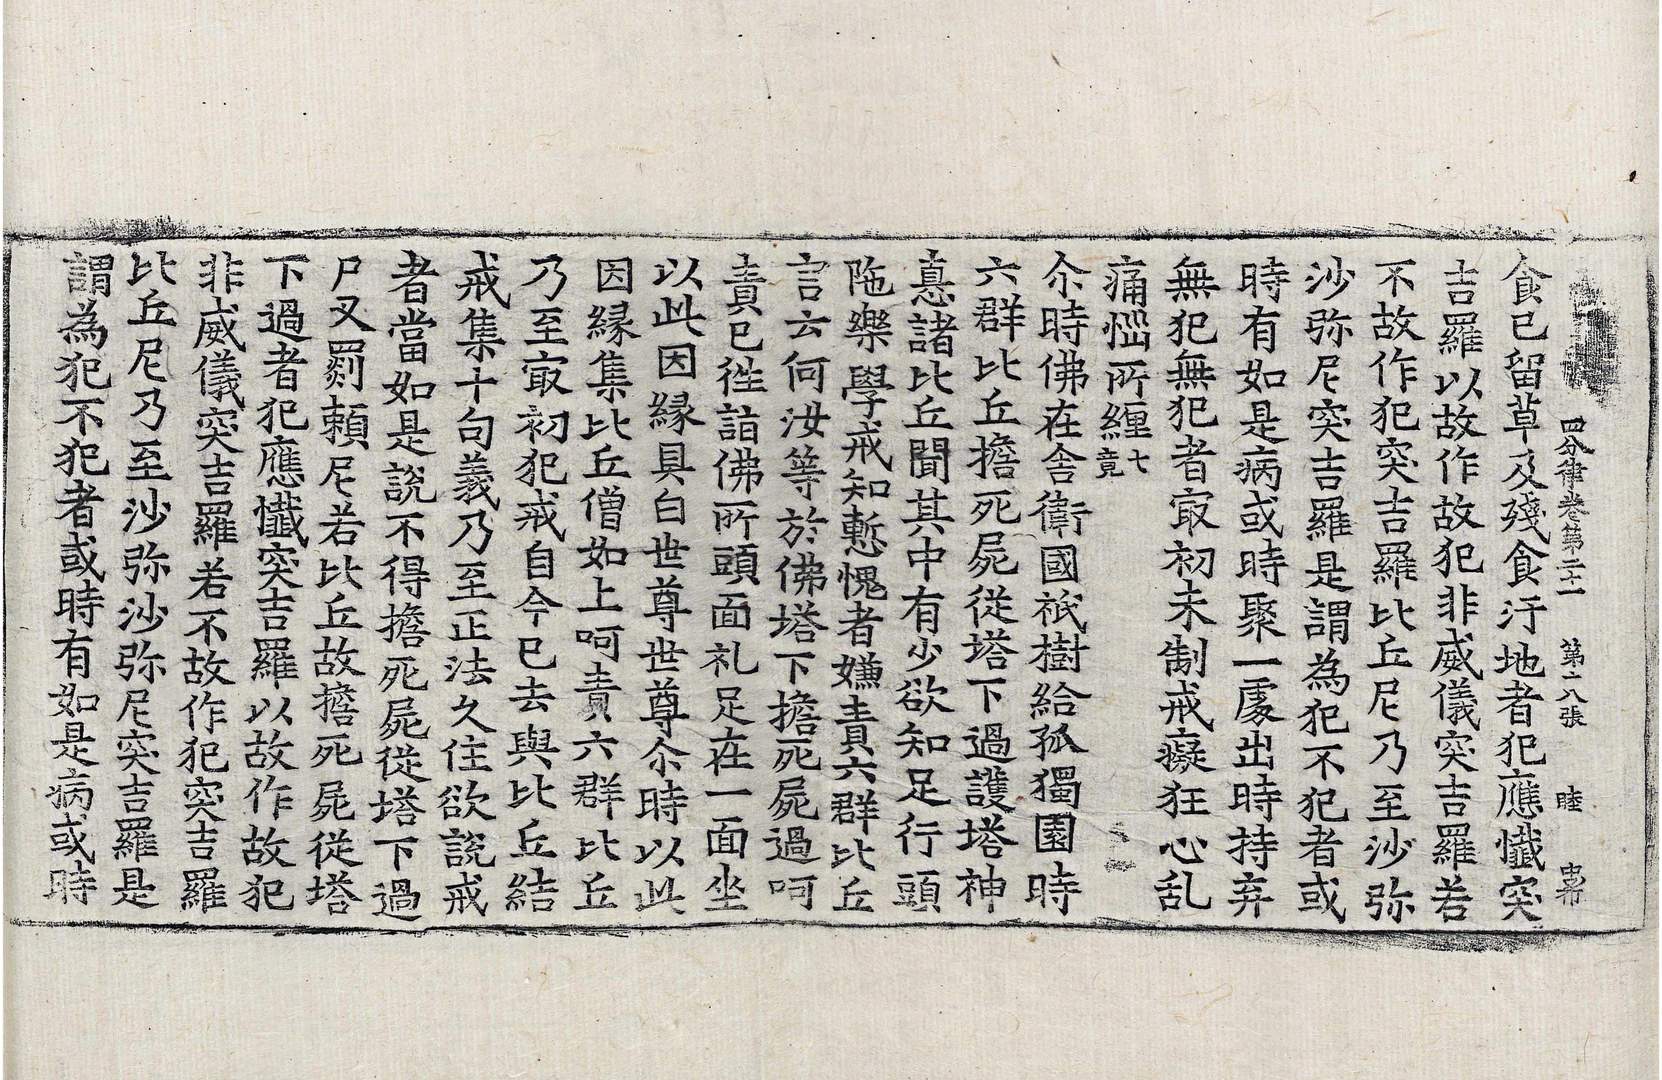 四分律卷第二十一　第十八張　睦　史希
食已留草及殘食汙地者犯應懺突
吉羅以故作故犯非威儀突吉羅若
不故作犯突吉羅比丘尼乃至沙弥
沙弥尼突吉羅是謂為犯不犯者或
時有如是病或時聚一處出時持弃
無犯無犯者㝡初未制戒癡狂心乱
痛惱所纏七竟
尒時佛在舍衛國祇樹給孤獨園時
六群比丘擔死屍從塔下過護塔神
恚諸比丘聞其中有少欲知足行頭
陁樂學戒知慙愧者嫌責六群比丘
言云何汝等於佛塔下擔死屍過呵
責已徃詣佛所頭面礼足在一面坐
以此因緣具白世尊世尊尒時以此
因緣集比丘僧如上呵責六群比丘
乃至㝡初犯戒自今已去與比丘結
戒集十句義乃至正法久住欲說戒
者當如是說不得擔死屍從塔下過
尸叉罽賴尼若比丘故擔死屍從塔
下過者犯應懺突吉羅以故作故犯
非威儀突吉羅若不故作犯突吉羅
比丘尼乃至沙弥沙弥尼突吉羅是
謂為犯不犯者或時有如是病或時